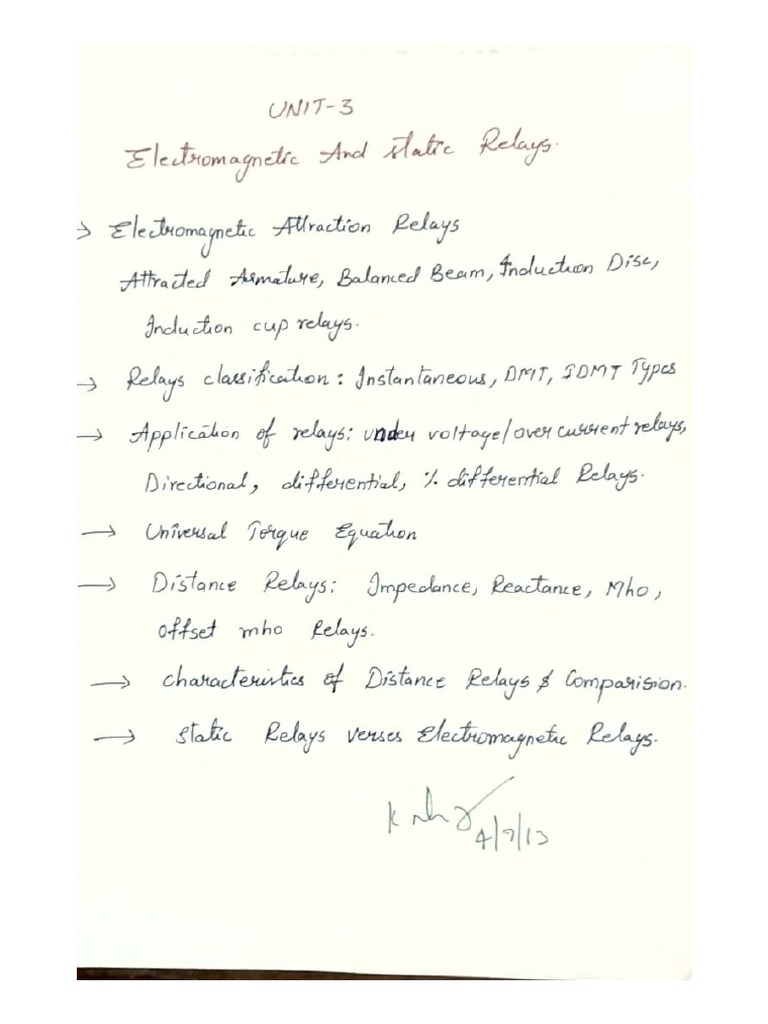 UNIT-3
Electromagnetic And Static Relays.
→ Electromagnetic Attraction Relays
Attracted Armature, Balanced Beam, Induction Disc,
Induction cup relays.
→ Relays classification: Instantaneous, DMT, IDMT Types
→ Application of relays: under voltage/over current relays,
Directional, differential, % differential Relays.
→ Universal Torque Equation
→ Distance Relays: Impedance, Reactance, Mho,
offset mho Relays.
→ Characteristics of Distance Relays & Comparision.
→ Static Relays verses Electromagnetic Relays.